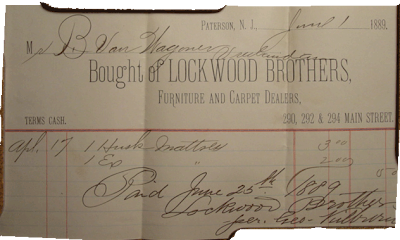 PATERSON, N. J., June 1 1889.
M s B. Van Wagoner
Bought of LOCKWOOD BROTHERS,
FURNITURE AND CARPET DEALERS,
TERMS CASH. 290, 292 & 294 MAIN STREET.
Apl. 17 1 Husk Mattress 3.00
1 Ex " 2.00
Paid June 25th 1889
Lockwood Brothers
per. Geo.